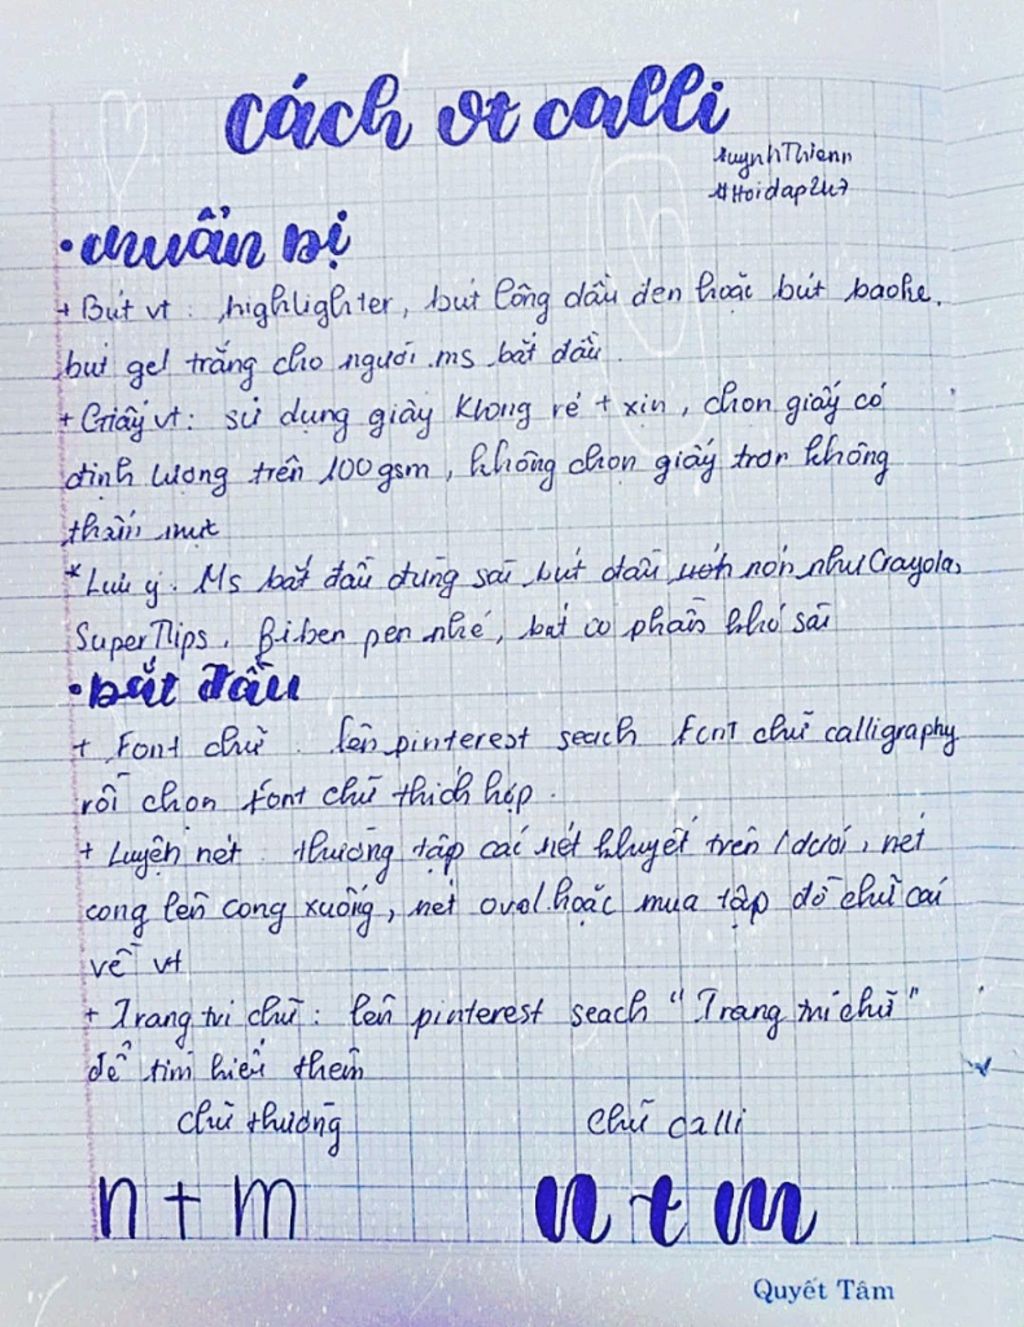 cách vt calli
HuynhThienn
#Hoidap247
• chuẩn bị
+ Bút vt : highlighter, bút lông dầu đen hoặc bút bache.
bút gel trắng cho người ms bắt đầu.
+ Giấy vt: sử dụng giấy không rẻ + xịn, chọn giấy có
định lượng trên 100gsm, không chọn giấy trơn không
thấm mực
*Lưu ý. Ms bắt đầu đừng sài bút đầu nón như Crayola,
SuperTips, Biben pen nhé, bút co phần khó sài
• bắt đầu
+ Font chữ : lên pinterest seach font chữ calligraphy
rồi chọn font chữ thích hợp.
+ Luyện nét : thường tập các nét khuyết trên / dưới, nét
cong lên cong xuống, nét oval hoặc mua tập đồ chữ cái
về vt
+ Trang trí chữ : lên pinterest seach "Trang trí chữ"
để tìm hiểu thêm
chữ thường chữ calli
n + m n t m
Quyết Tâm